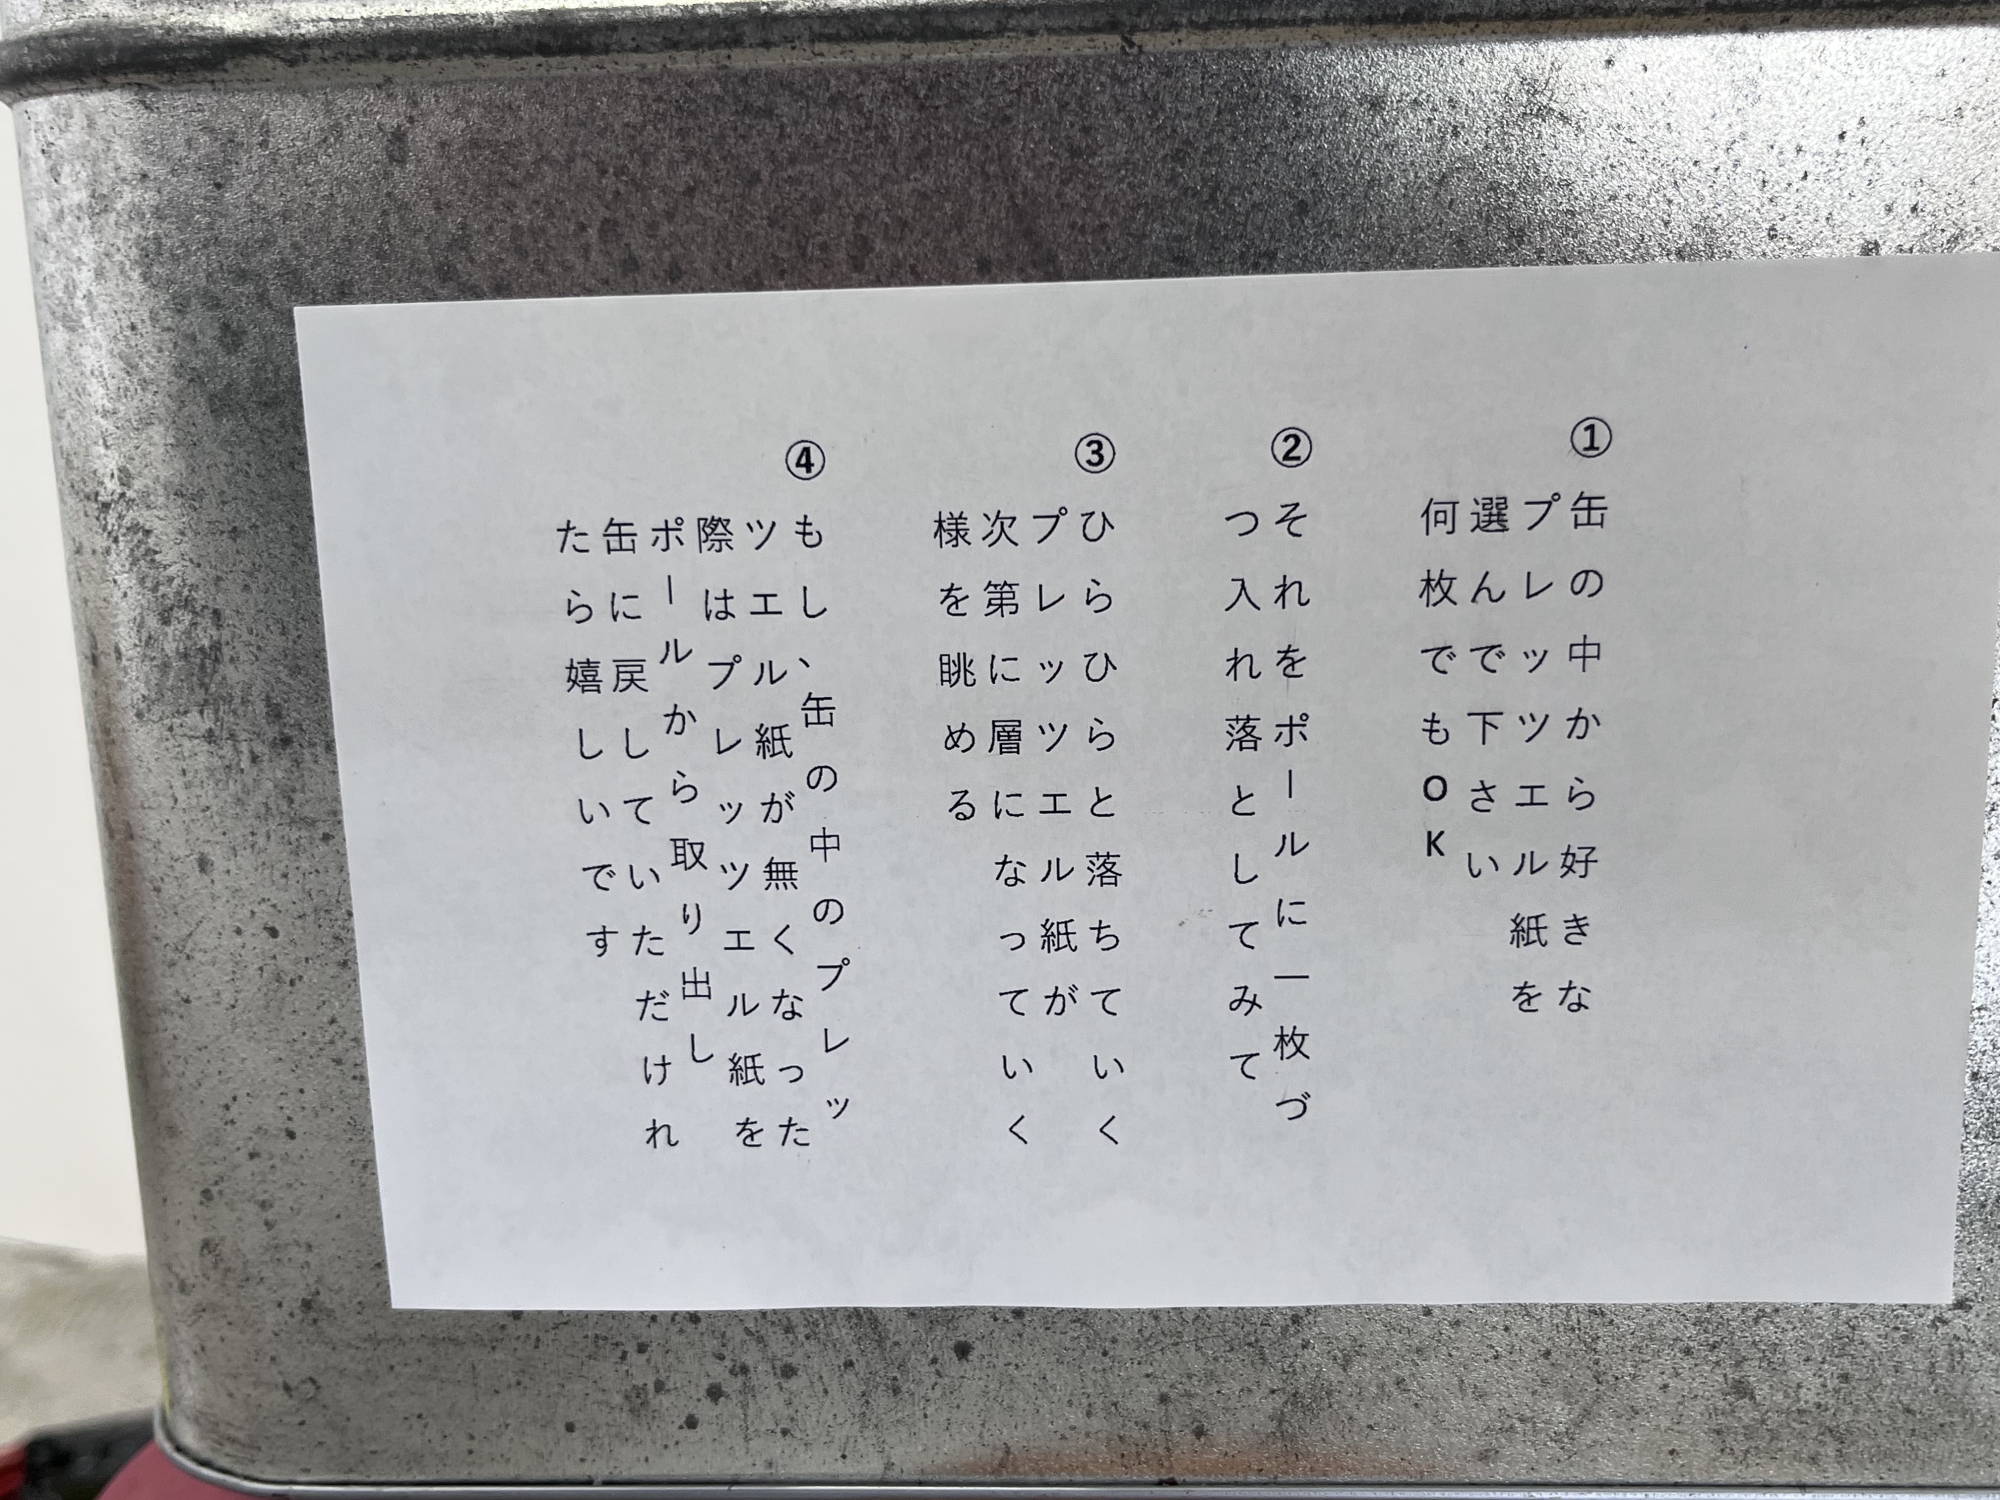 ①
缶の中から好きな
プレッツエル紙を
選んで下さい
何枚でもOK
②
それをポールに一枚づ
つ入れ落としてみて
③
ひらひらと落ちていく
プレッツエル紙が
次第に層になっていく
様を眺める
④
もし、缶の中のプレッ
ツエル紙が無くなった
際はプレッツエル紙を
ポールから取り出し
缶に戻していただけれ
たら嬉しいです